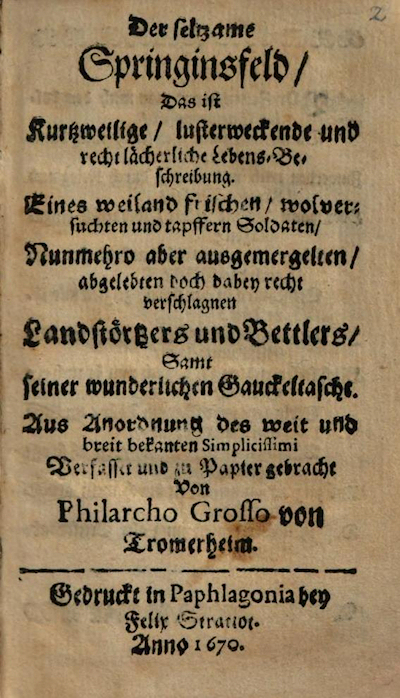 2
Der seltzame
Springinsfeld/
Das ist
Kurtzweilige/ lusterweckende und
recht lächerliche Lebens-Be-
schreibung.
Eines weiland frischen/ wolver-
suchten und tapffern Soldaten/
Nunmehro aber ausgemergelten/
abgelebten doch dabey recht
verschlagnen
Landstörtzers und Bettlers/
Samt
seiner wunderlichen Gauckeltasche.
Aus Anordnung des weit und
breit bekanten Simplicissimi
Verfasset und zu Papier gebracht
Von
Philarcho Grosso von
Tromerheim.
Gedruckt in Paphlagonia bey
Felix Stratiot.
Anno 1670.